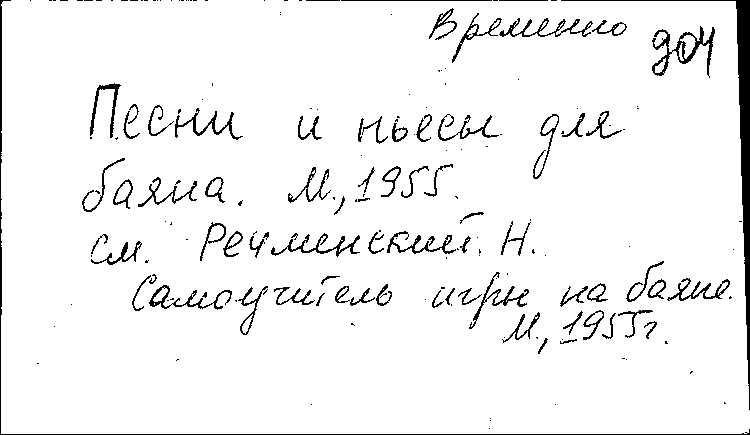 Временно 904
Песни и пьесы для
баяна. М., 1955.
см. Речменский. Н.
Самоучитель игры на баяне.
М., 1955г.